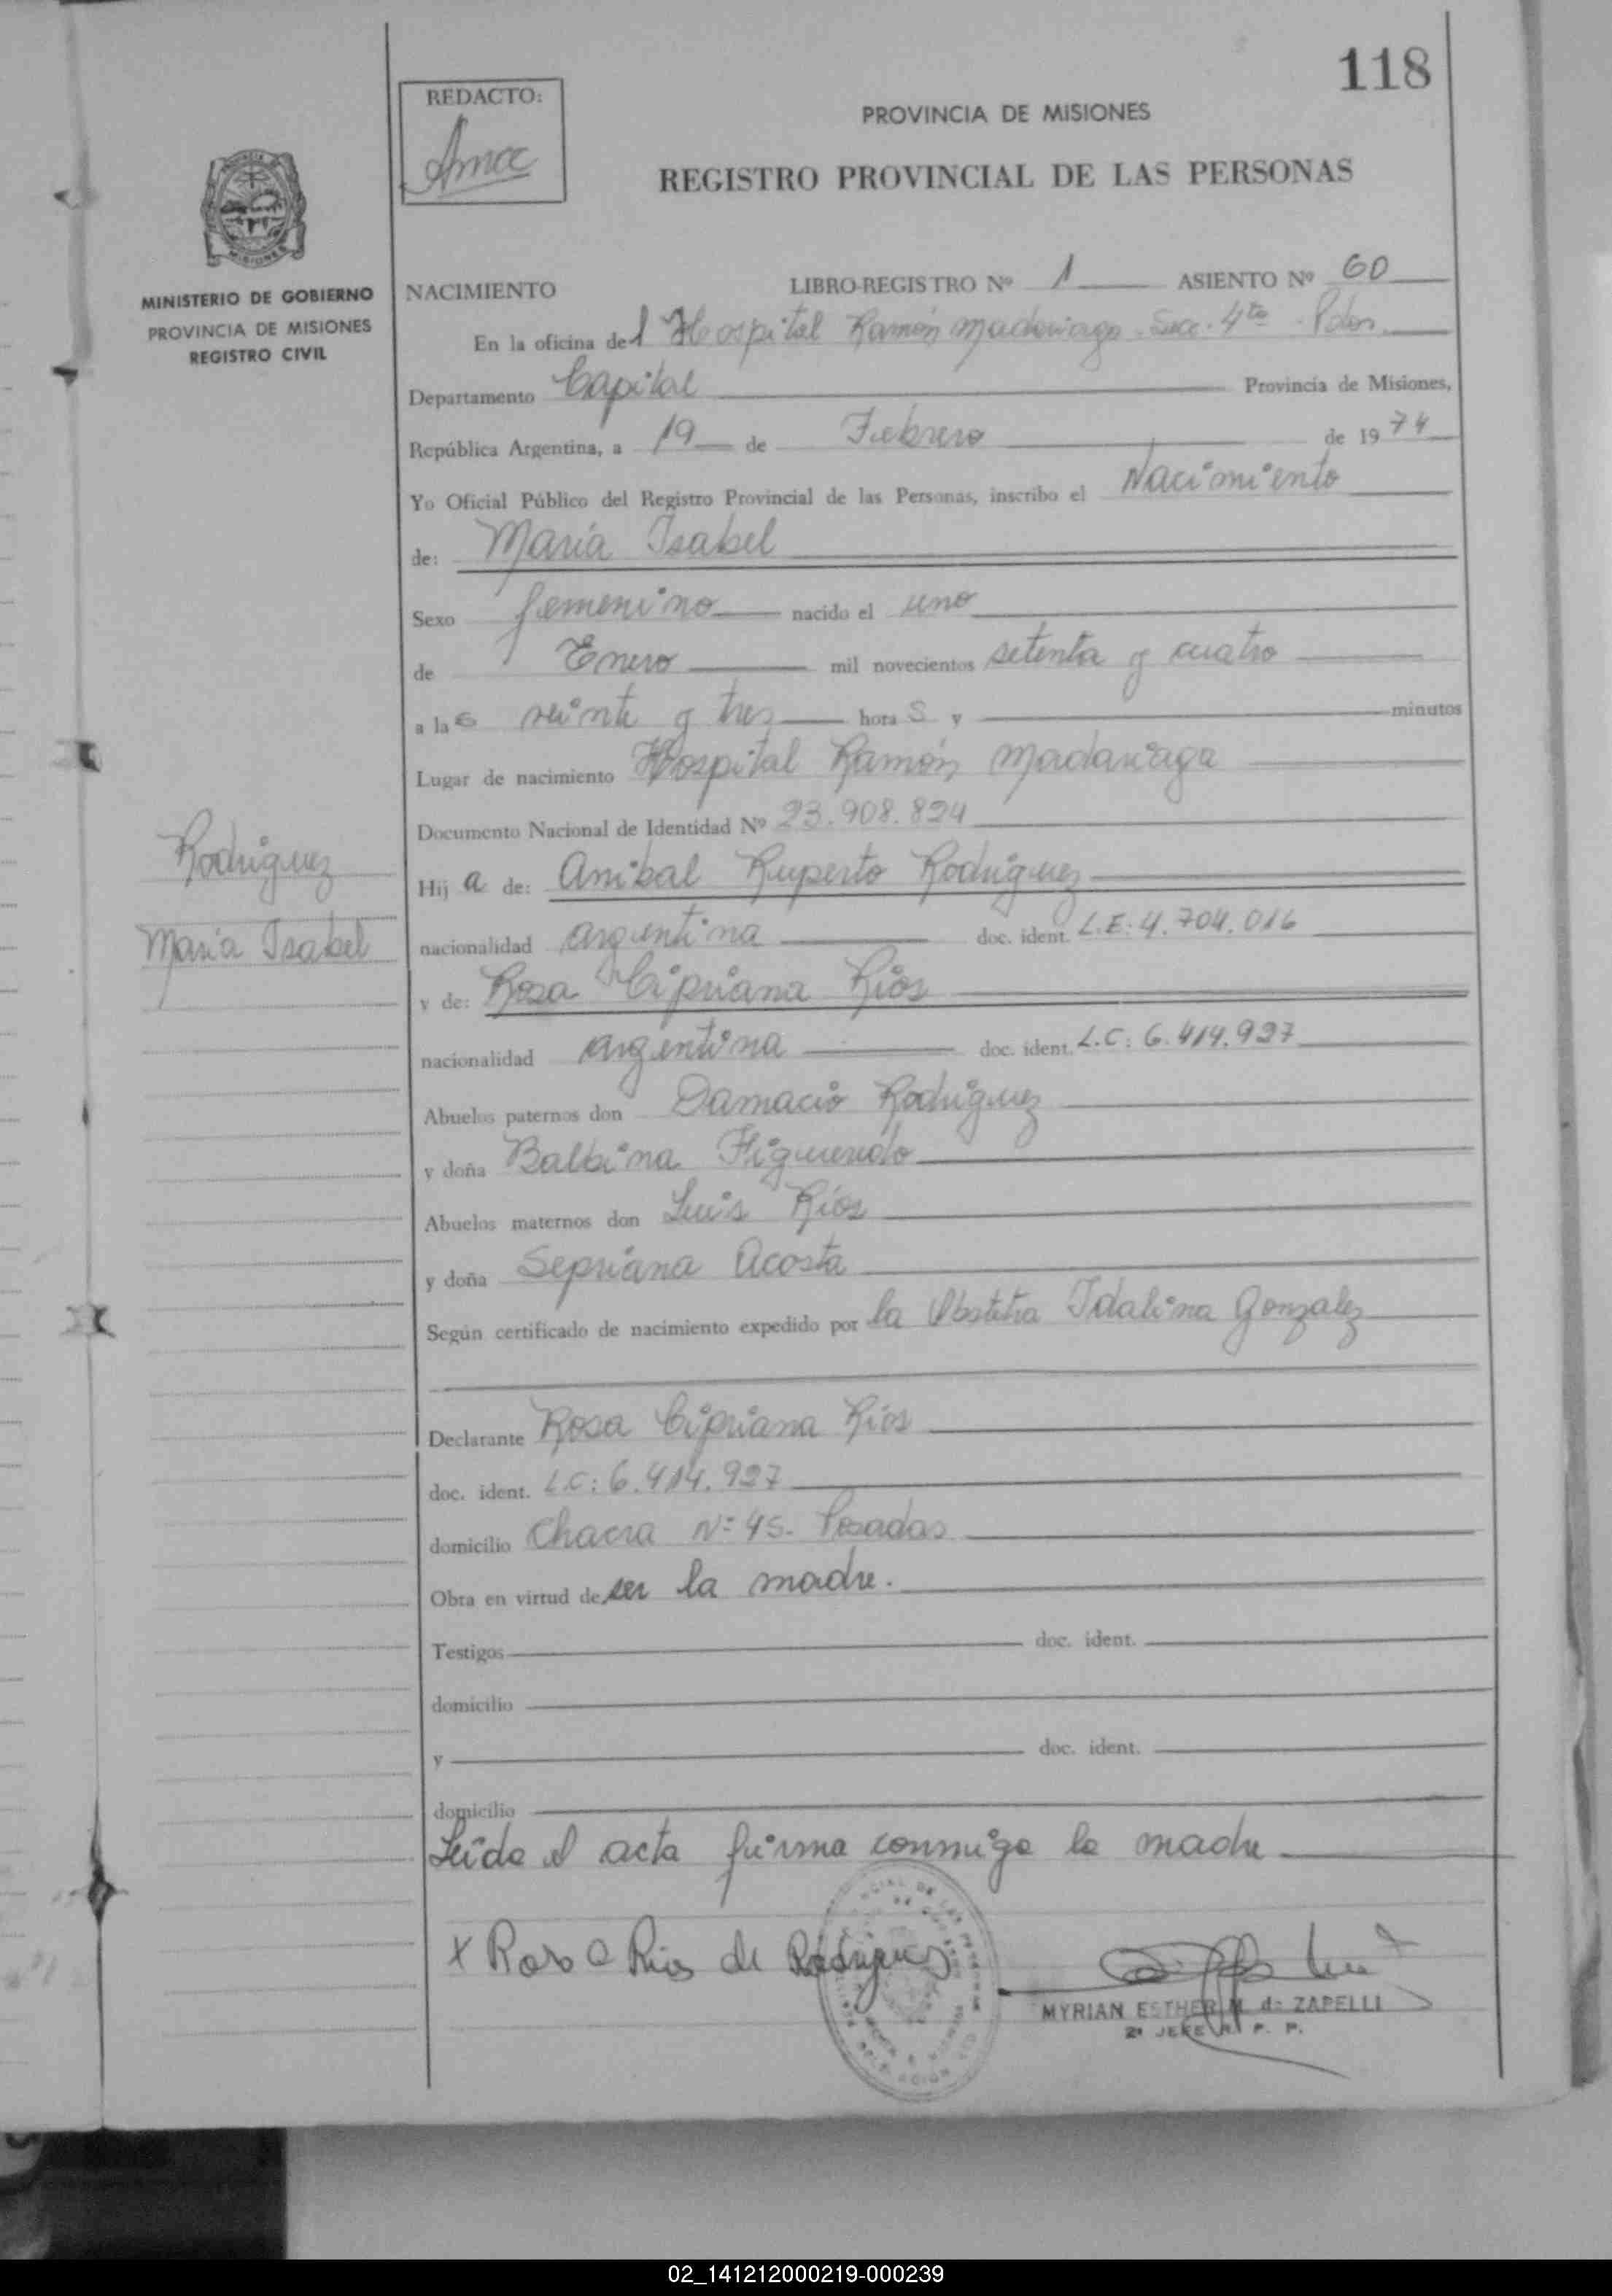 118
REDACTO:
PROVINCIA DE MISIONES
REGISTRO PROVINCIAL DE LAS PERSONAS
MINISTERIO DE GOBIERNO
PROVINCIA DE MISIONES
REGISTRO CIVIL
NACIMIENTO LIBRO-REGISTRO Nº 1 ASIENTO Nº 60
En la oficina del Hospital Ramón Madariaga - Secc. 4ta - Pdas.
Departamento Capital Provincia de Misiones,
República Argentina, a 19 de Febrero de 1974
Yo Oficial Público del Registro Provincial de las Personas, inscribo el Nacimiento
de: María Isabel
Sexo femenino nacido el uno
de Enero mil novecientos setenta y cuatro
a las veinte y tres horas y minutos
Lugar de nacimiento Hospital Ramón Madariaga
Documento Nacional de Identidad Nº 23.908.824
Rodriguez
María Isabel
Hija de: Anibal Ruperto Rodriguez
nacionalidad argentina doc. ident. L.E: 4.704.016
y de: Rosa Cipriana Ríos
nacionalidad argentina doc. ident. L.C: 6.414.927
Abuelos paternos don Damacio Rodriguez
y doña Balbina Figueredo
Abuelos maternos don Luis Ríos
y doña Sepriana Acosta
Según certificado de nacimiento expedido por la Obstetra Idalina Gonzalez
Declarante Rosa Cipriana Ríos
doc. ident. L.C: 6.414.927
domicilio Chacra Nº 45- Posadas
Obra en virtud de ser la madre.
Testigos doc. ident.
domicilio
y doc. ident.
domicilio
Leída el acta firma conmigo la madre
x Rosa C Rios de Rodriguez
MYRIAN ESTHER M. de ZAPELLI
2º JEFE R. P. P.
02_141212000219-000239